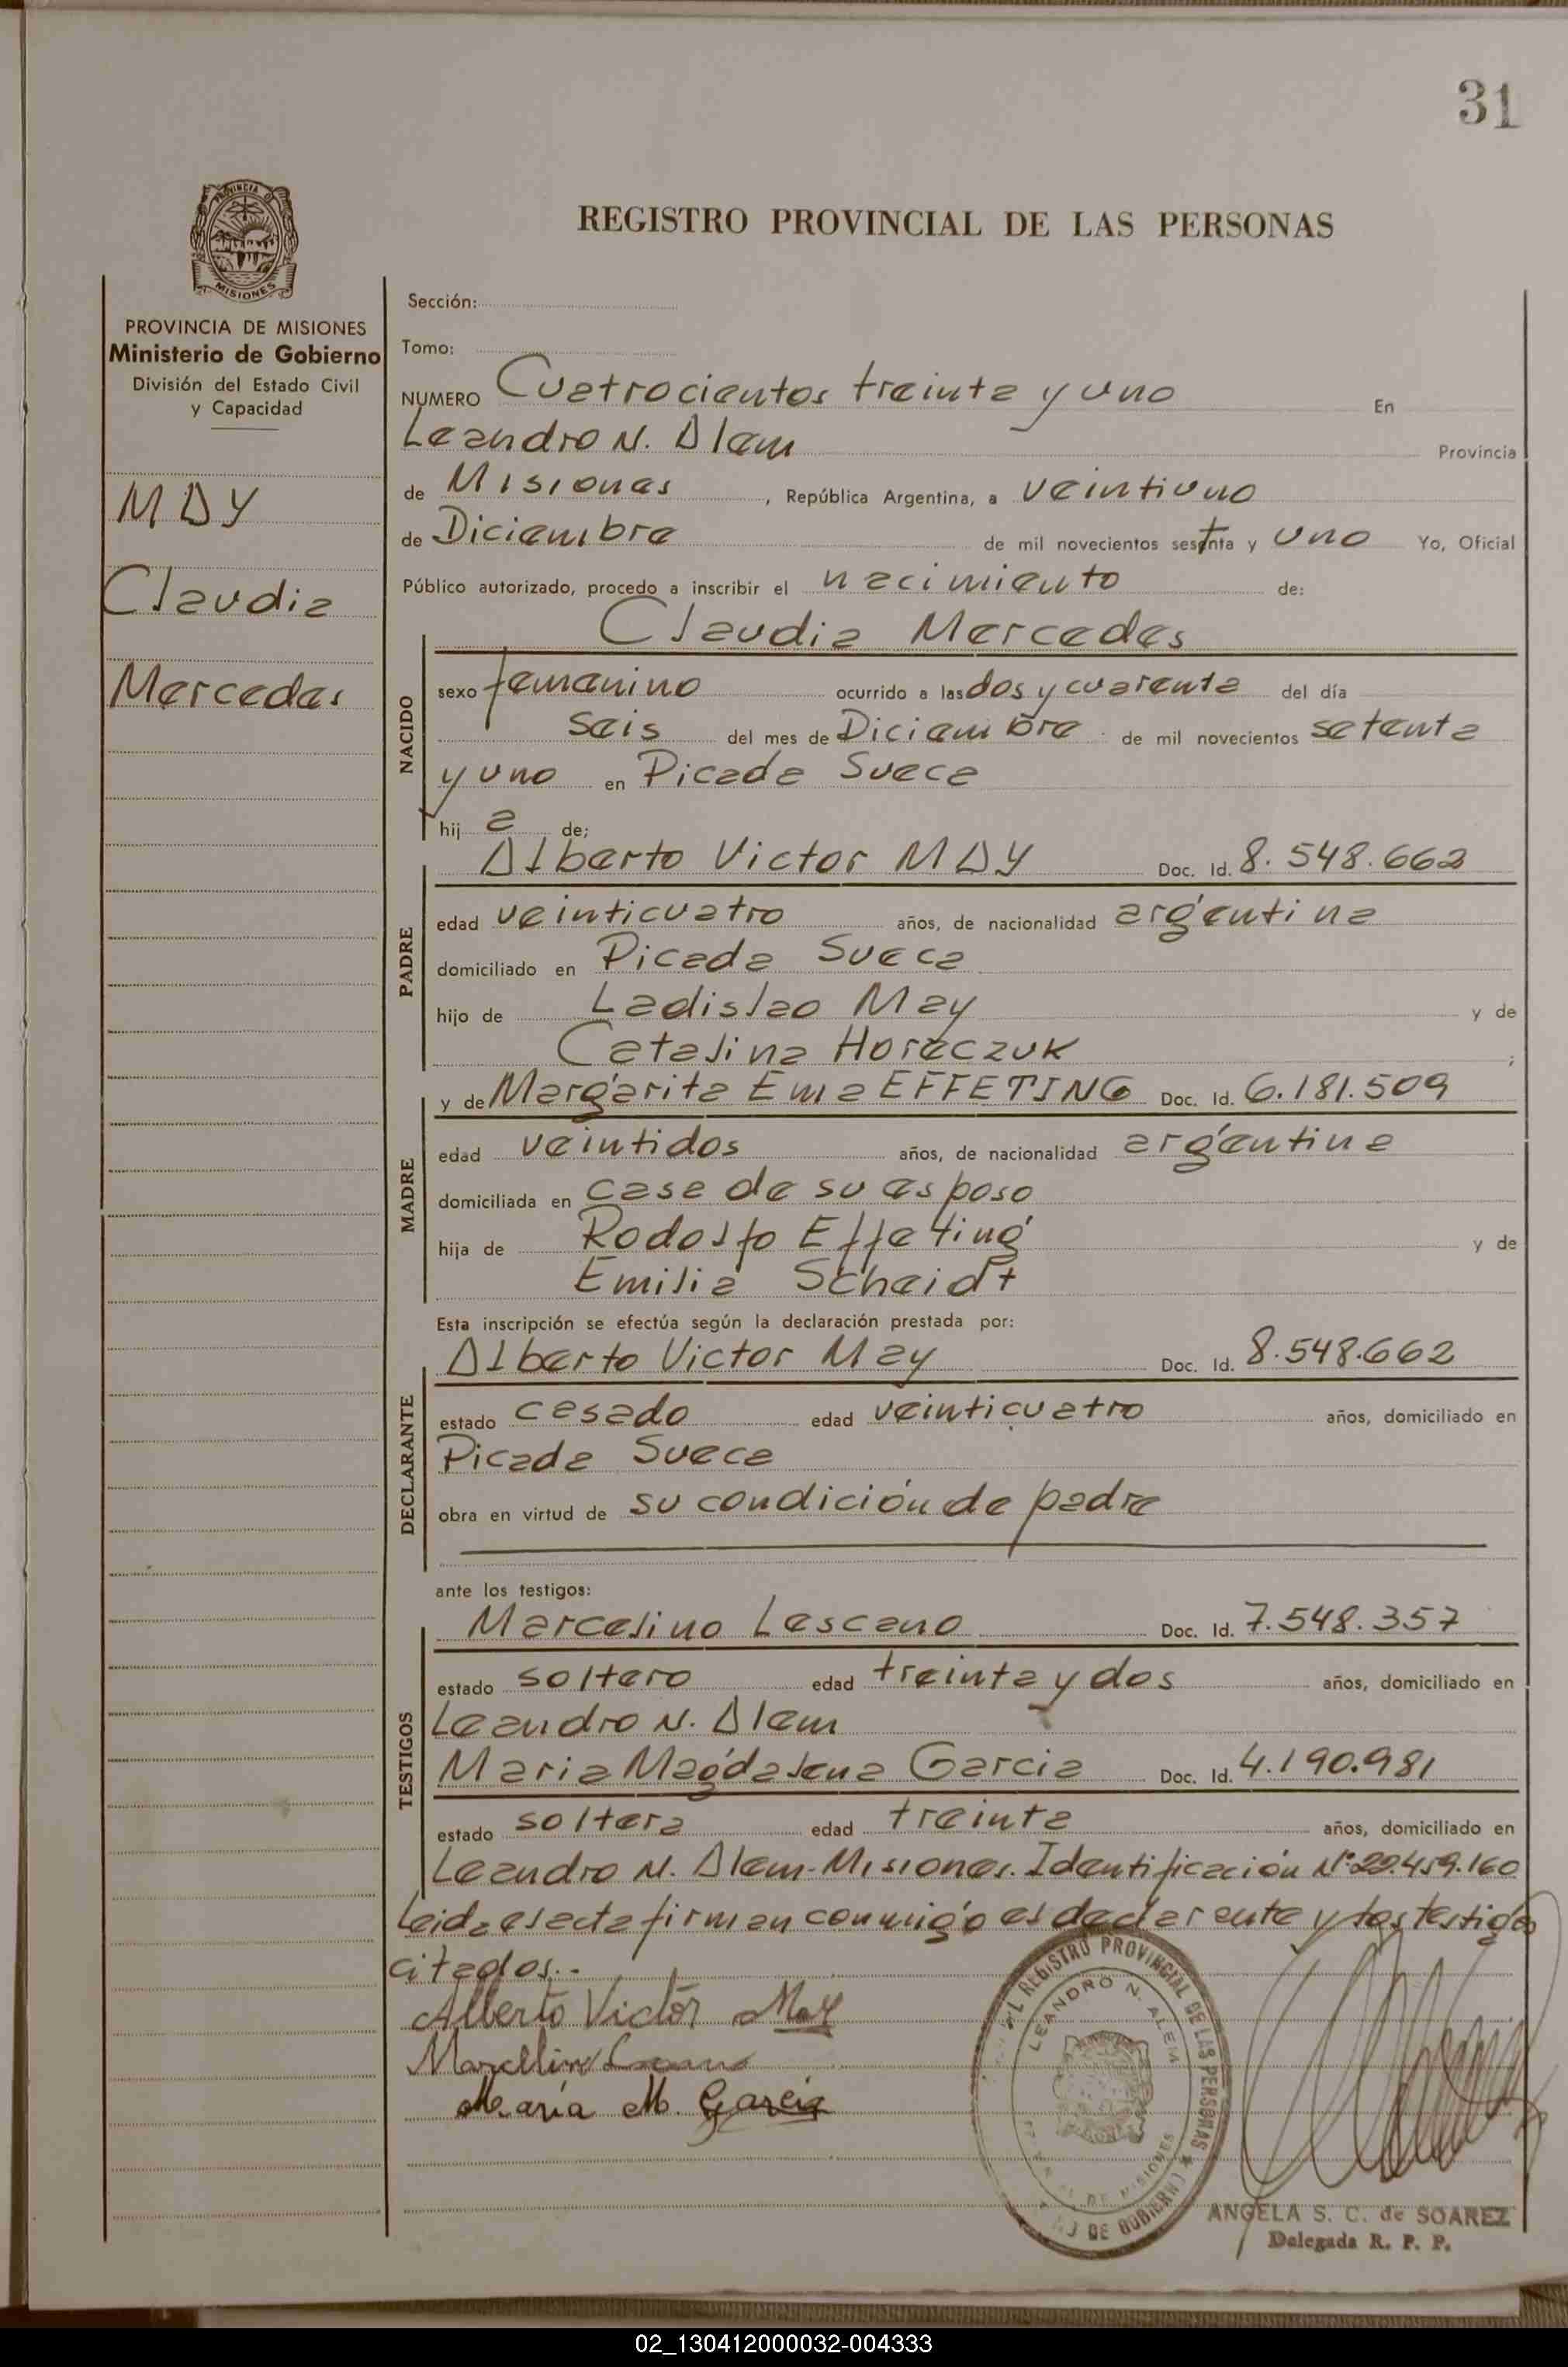 31
PROVINCIA DE
MISIONES
REGISTRO PROVINCIAL DE LAS PERSONAS
PROVINCIA DE MISIONES
Ministerio de Gobierno
División del Estado Civil
y Capacidad
MAY
Claudia
Mercedes
Sección:
Tomo:
NUMERO Cuatrocientos treinta y uno En
Leandro N. Alem Provincia
de Misiones, República Argentina, a veintiuno
de Diciembre de mil novecientos setenta y uno Yo, Oficial
Público autorizado, procedo a inscribir el nacimiento de:
Claudia Mercedes
NACIDO
sexo femenino ocurrido a las dos y cuarenta del día
seis del mes de Diciembre de mil novecientos setenta
y uno en Picada Sueca
hija de;
PADRE
Alberto Victor MAY Doc. Id. 8.548.662
edad veinticuatro años, de nacionalidad argentina
domiciliado en Picada Sueca
hijo de Ladislao May y de
Catalina Horeczuk ;
MADRE
y de Margarita Ema EFFETING Doc. Id. 6.181.509
edad veintidos años, de nacionalidad argentina
domiciliada en casa de su esposo
hija de Rodolfo Effeting y de
Emilia Scheidt
Esta inscripción se efectúa según la declaración prestada por:
DECLARANTE
Alberto Victor May Doc. Id. 8.548.662
estado casado edad veinticuatro años, domiciliado en
Picada Sueca
obra en virtud de su condición de padre
ante los testigos:
TESTIGOS
Marcelino Lescano Doc. Id. 7.548.357
estado soltero edad treinta y dos años, domiciliado en
Leandro N. Alem
Maria Magdalena Garcia Doc. Id. 4.190.981
estado soltera edad treinta años, domiciliado en
Leandro N. Alem-Misiones. Identificación Nº 22.459.160
Leida el acta firman conmigo el declarante y los testigos
citados.-
Alberto Victor May
Marcelino Lescano
María M. Garcia
REGISTRO PROVINCIAL DE LAS PERSONAS
LEANDRO N. ALEM
DE MISIONES
DE GOBIERN
ANGELA S. C. de SOAREZ
Delegada R. P. P.
02_130412000032-004333